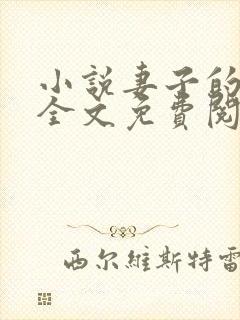 小說妻子的
全文免費閱
西尔維斯特雷